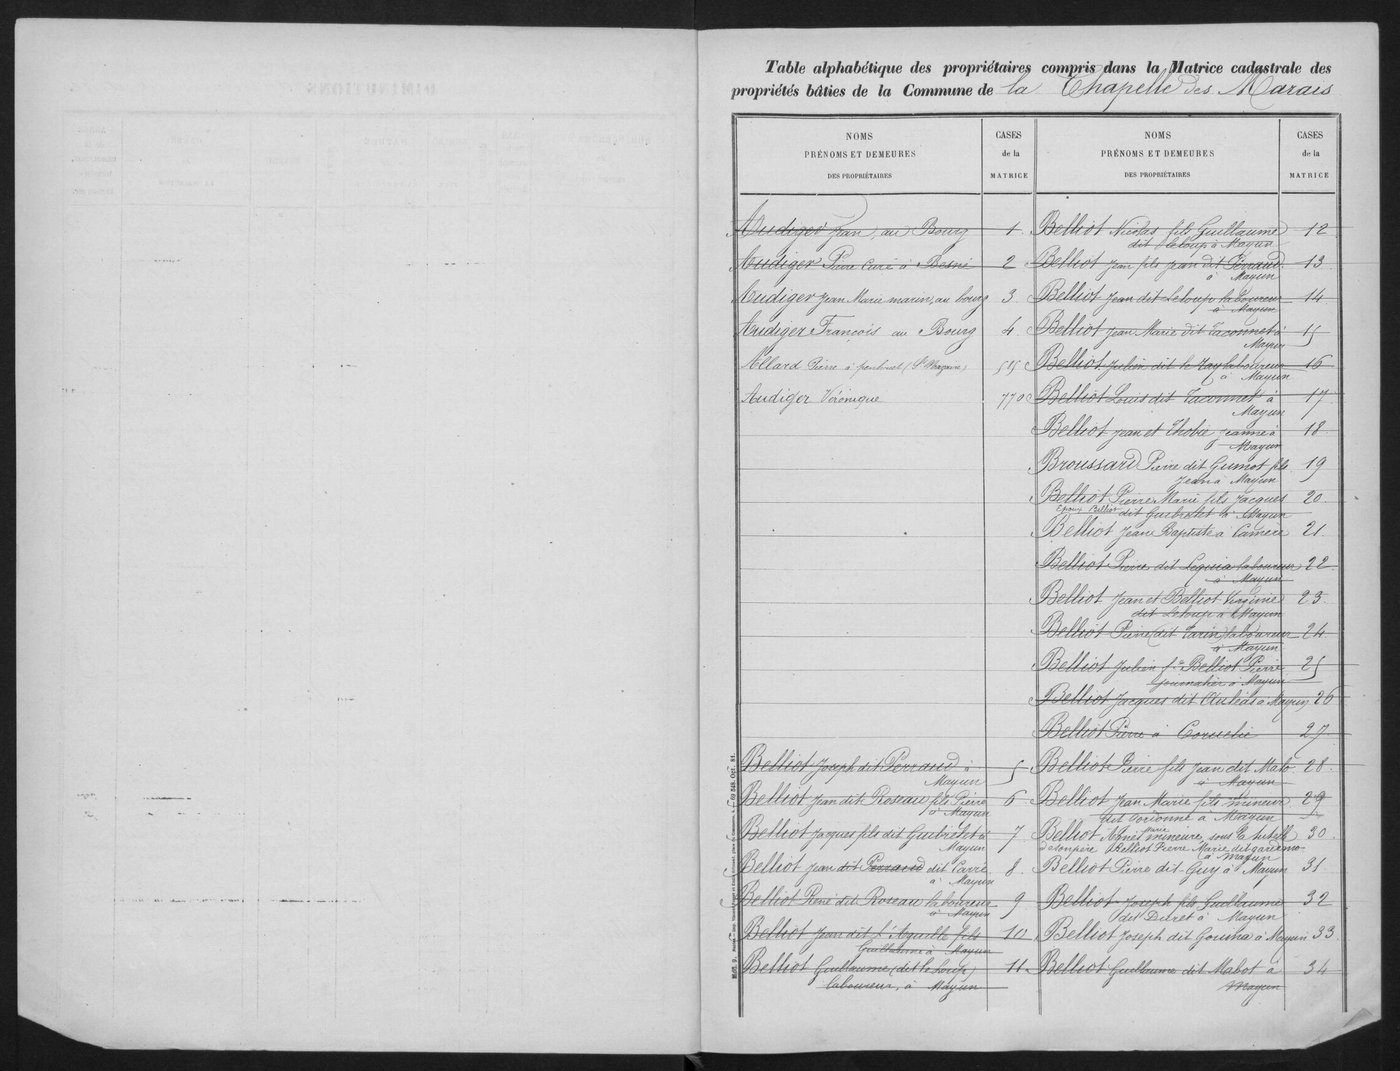 Table alphabétique des propriétaires compris dans la Matrice cadastrale des
propriétés bâties de la Commune de la Chapelle des Marais
NOMS
PRÉNOMS ET DEMEURES
DES PROPRIÉTAIRES
CASES
de la
MATRICE
Audiger Jean, au Bourg 1
Audiger Pierre curé à Besné 2
Audiger Jean Marie marin, au bourg 3
Audiger François au Bourg 4
Allard Pierre à (St Nazaire) 515
Audiger Véronique 770
Belliot Joseph dit Perraud à
Mayun 5
Belliot Jean dit Roseau fils Pierre
à Mayun 6
Belliot Jacques fils dit Guebrelet à
Mayun 7
Belliot Jean dit Perraud dit Parré
à Mayun 8
Belliot René dit Roseau laboureur
à Mayun 9
Belliot Jean dit L'Aiguille fils
Guillaume à Mayun 10
Belliot Guillaume (dit le Loup)
laboureur, à Mayun 11
NOMS
PRÉNOMS ET DEMEURES
DES PROPRIÉTAIRES
CASES
de la
MATRICE
Belliot Nicolas fils Guillaume
dit Leloup à Mayun 12
Belliot Jean fils Jean dit Perraud
à Mayun 13
Belliot Jean dit Leloup laboureur
à Mayun 14
Belliot Jean Marie dit Taconnet à
Mayun 15
Belliot Julien dit le Roy laboureur
à Mayun 16
Belliot Louis dit Taconnet à
Mayun 17
Belliot Jean et Thobie Jeanne à
Mayun 18
Broussard Pierre dit Gumot fils
Jean à Mayun 19
Belliot Pierre Marie fils Jacques
Epoux Belliot dit Guebrelet à Mayun 20
Belliot Jean Baptiste à Camère 21
Belliot Pierre dit laboureur
à Mayun 22
Belliot Jean et Belliot Virginie
dit Leloup à Mayun 23
Belliot Pierre (dit Tarin) laboureur
à Mayun 24
Belliot Julien fs Belliot Pierre
journalier à Mayun 25
Belliot Jacques dit à Mayun 26
Belliot Pierre à 27
Belliot Pierre fils Jean dit Malo
à Mayun 28
Belliot Jean Marie fils mineur
dit à Mayun 29
Belliot Agnès Marie mineure sous la tutelle
de son père Belliot Pierre Marie dit
à Mayun 30
Belliot Pierre dit Guy à Mayun 31
Belliot Joseph fils Guillaume
dit Duret à Mayun 32
Belliot Joseph dit Gouiha à Mayun 33
Belliot Guillaume dit Mabot à
Mayun 34